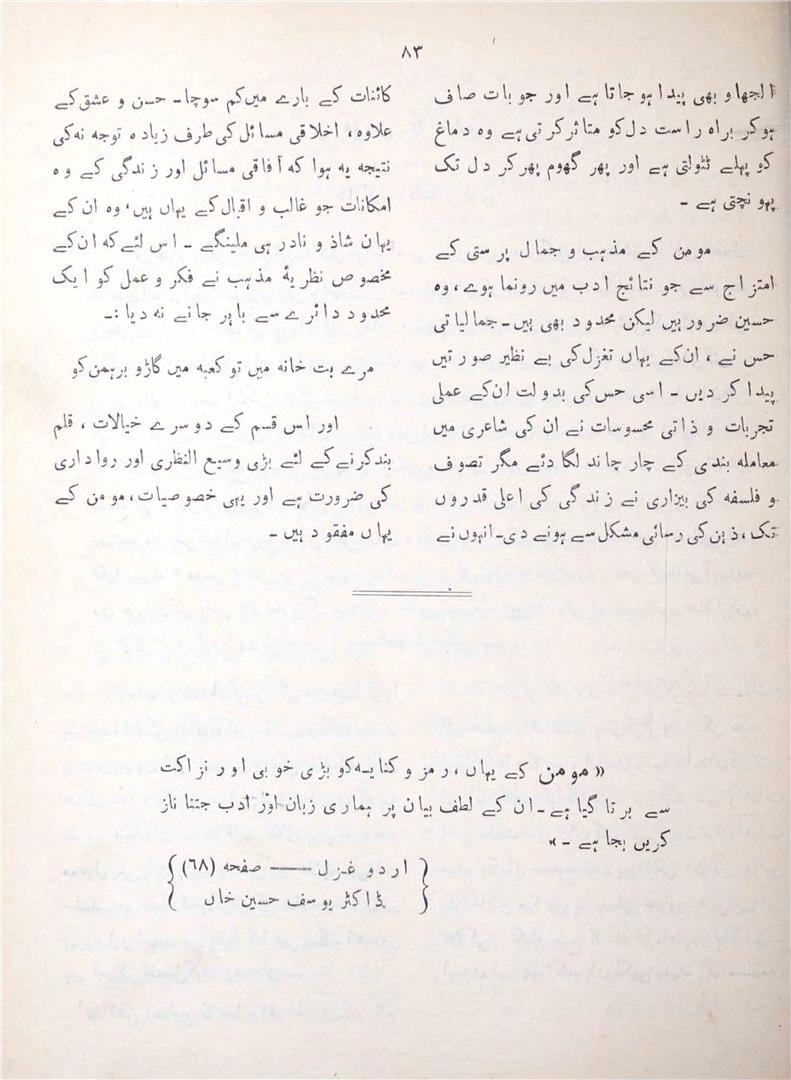 ۸۳
الجھاو بھی پیدا ہو جاتا ہے اور جو بات صاف
ہوکر براہ راست دل کو متاثر کرتی ہے وہ دماغ
کو پہلے ٹٹولتی ہے اور پھر گھوم پھر کر دل تک
پہونچتی ہے ۔
مومن کے مذہب و جمال پرستی کے
امتزاج سے جو نتائج ادب میں رونما ہوے، وہ
حسین ضرور ہیں لیکن محدود بھی ہیں۔ جمالیاتی
حس نے ، ان کے یہاں تغزل کی بے نظیر صورتیں
پیدا کر دیں ۔ اسی حس کی بدولت ان کے عملی
تجربات و ذاتی محسوسات نے ان کی شاعری میں
معاملہ بندی کے چار چاند لگا دئے مگر تصوف
و فلسفہ کی بیزاری نے زندگی کی اعلیٰ قدروں
تک ، ذہن کی رسائی مشکل سے ہونے دی۔ انہوں نے
کائنات کے بارے میں کم سوچا۔ حسن و عشق کے
علاوہ، اخلاقی مسائل کی طرف زیادہ توجہ نہ کی
نتیجہ یہ ہوا کہ آفاقی مسائل اور زندگی کے وہ
امکانات جو غالب و اقبال کے یہاں ہیں، وہ ان کے
یہاں شاذ و نادر ہی ملینگے ۔ اس لئے کہ ان کے
مخصوص نظریۂ مذہب نے فکر و عمل کو ایک
محدود دائرے سے باہر جانے نہ دیا :۔
مرے بت خانہ میں تو کعبہ میں گاڑو برہمن کو
اور اس قسم کے دوسرے خیالات ، قلم
بند کرنے کے لئے بڑی وسیع النظری اور رواداری
کی ضرورت ہے اور یہی خصوصیات، مومن کے
یہاں مفقود ہیں ۔
« مومن کے یہاں ، رمز و کنایہ کو بڑی خوبی اور نزاکت
سے برتا گیا ہے۔ ان کے لطف بیان پر ہماری زبان اور ادب جتنا ناز
کریں بجا ہے ۔ »
{ اردو غزل —— صفحہ (۶۸) }
{ ڈاکٹر یوسف حسین خاں }